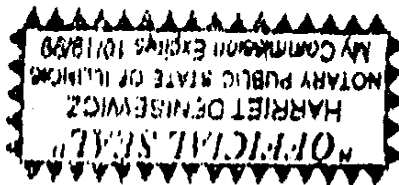 "OFFICIAL SEAL"
HARRIET DENISEWICZ
NOTARY PUBLIC STATE OF ILLINOIS
My Commission Expires 10/18/99